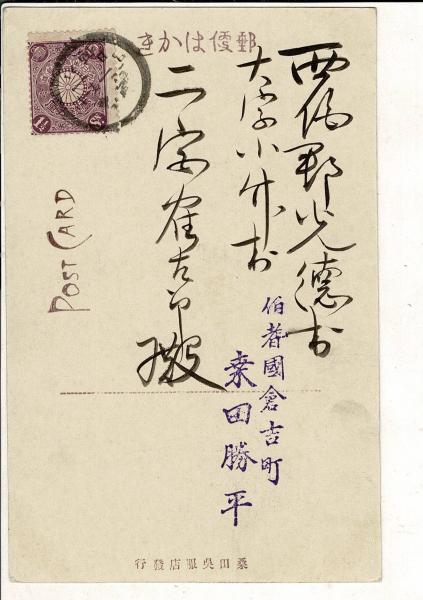 郵便はかき
西伯郡光德村
大字小竹村
二宮雀吉郎
殿
伯耆國倉吉町
桒田勝平
POST CARD
桑田吳服店發行